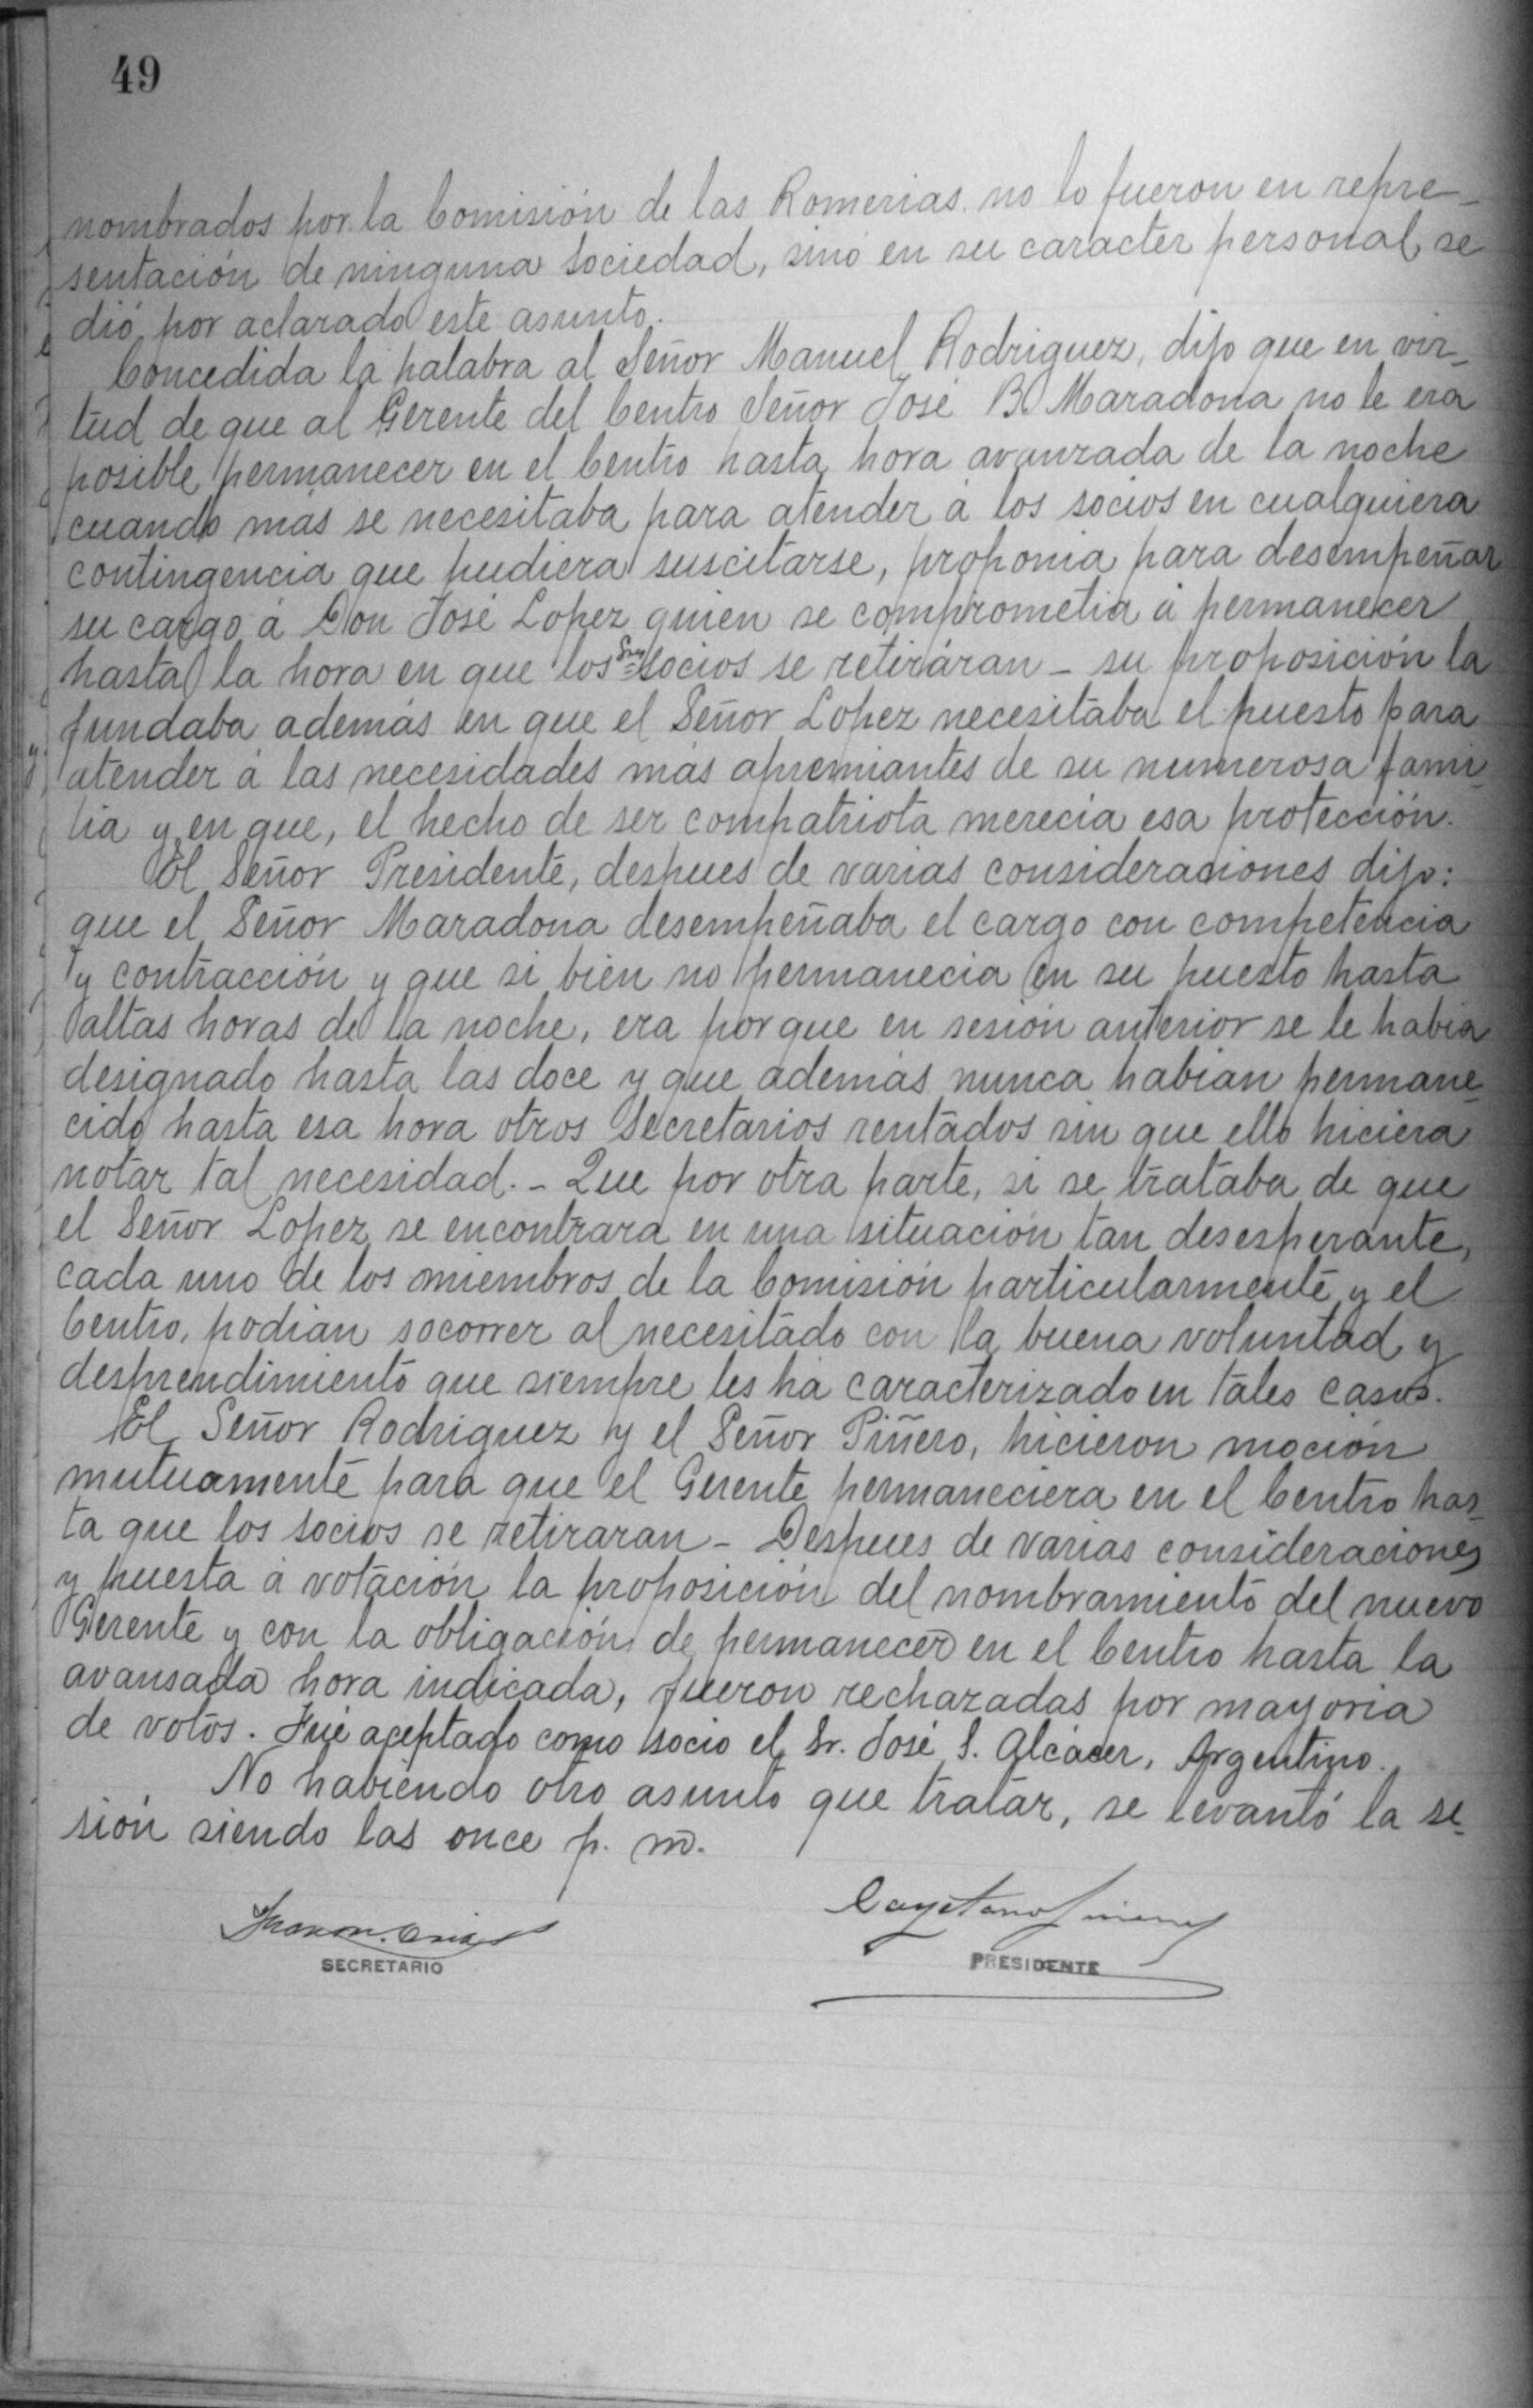 49
nombrados por la Comisión de las Romerias no lo fueron en repre-
sentación de ninguna Sociedad, sinó en su caracter personal, se
dió por aclarado este asunto.
Concedida la palabra al Señor Manuel Rodriguez, dijo que en vir-
tud de que al Gerente del Centro Señor José B. Maradona no le era
posible permanecer en el Centro hasta hora avanzada de la noche
cuando más se necesitaba para atender á los socios en cualquiera
contingencia que pudiera suscitarse, proponia para desempeñar
su cargo á Don José Lopez quien se comprometia á permanecer
hasta la hora en que los Sres socios se retiráran - su proposición la
fundaba además en que el Señor Lopez necesitaba el puesto para
atender á las necesidades más apremiantes de su numerosa fami-
lia y en que, el hecho de ser compatriota merecia esa protección.
El Señor Presidente, despues de varias consideraciones dijo:
que el Señor Maradona desempeñaba el cargo con competencia
y contracción y que si bien no permanecia en su puesto hasta
altas horas de la noche, era porque en sesión anterior se le habia
designado hasta las doce y que además nunca habian permane-
cido hasta esa hora otros Secretarios rentados sin que ello hiciera
notar tal necesidad. - Que por otra parte, si se trataba de que
el Señor Lopez se encontrara en una situación tan desesperante,
cada uno de los miembros de la Comisión particularmente y el
Centro, podian socorrer al necesitado con la buena voluntad y
desprendimiento que siempre les ha caracterizado en tales casos.
El Señor Rodriguez y el Señor Piñero, hicieron moción
mutuamente para que el Gerente permaneciera en el Centro has-
ta que los socios se retiraran - Despues de varias consideraciones
y puesta á votación la proposición del nombramiento del nuevo
Gerente y con la obligación de permanecer en el Centro hasta la
avansada hora indicada, fueron rechazadas por mayoria
de votos. Fué aceptado como socio el Sr. José S. Alcácer, Argentino.
No habiendo otro asunto que tratar, se levantó la se-
sión siendo las once p. m.
Cayetano
SECRETARIO
PRESIDENTE